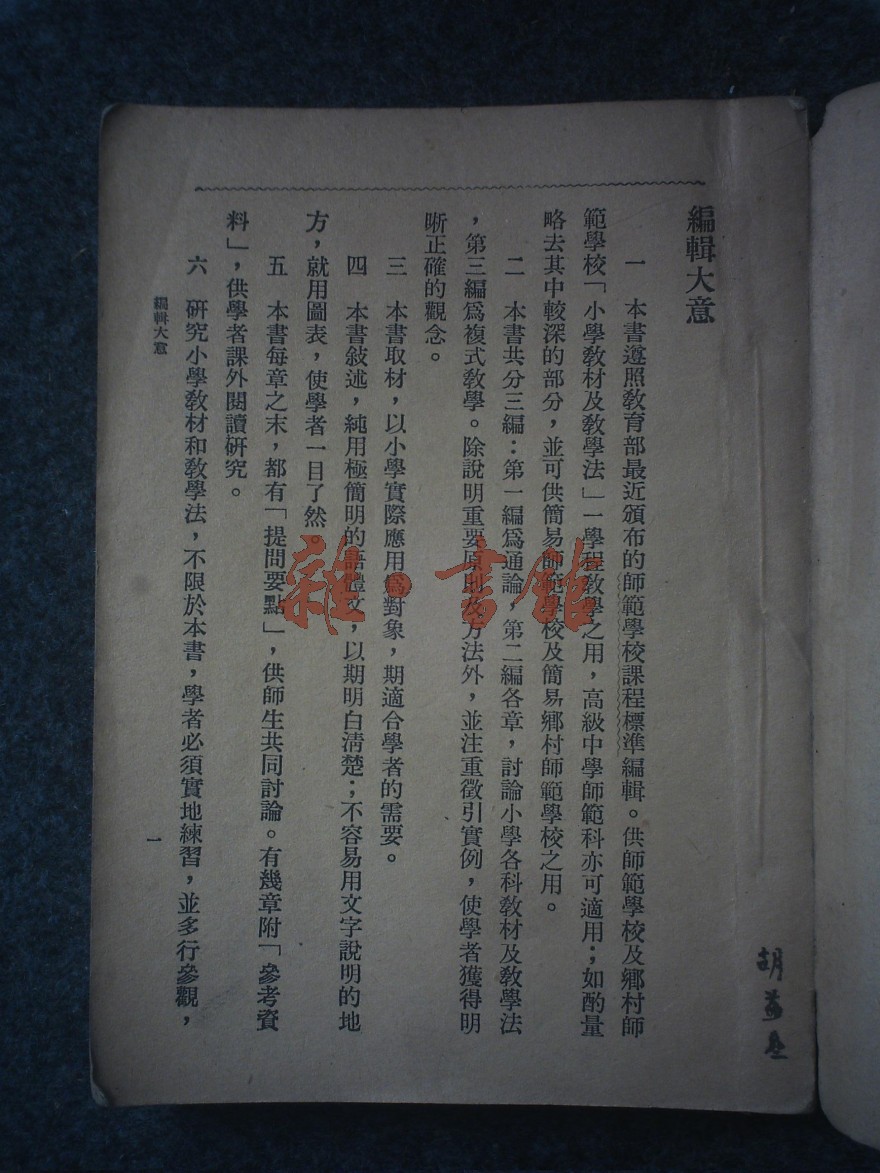 編輯大意
一　本書遵照教育部最近頒布的師範學校課程標準編輯。供師範學校及鄉村師
範學校「小學教材及教學法」一學程教學之用，高級中學師範科亦可適用；如酌量
略去其中較深的部分，並可供簡易師範學校及簡易鄉村師範學校之用。
二　本書共分三編：第一編爲通論，第二編各章，討論小學各科教材及教學法
，第三編爲複式教學。除說明重要原則及方法外，並注重徵引實例，使學者獲得明
晰正確的觀念。
三　本書取材，以小學實際應用爲對象，期適合學者的需要。
四　本書敍述，純用極簡明的語體文，以期明白清楚；不容易用文字說明的地
方，就用圖表，使學者一目了然。
五　本書每章之末，都有「提問要點」，供師生共同討論。有幾章附「參考資
料」，供學者課外閱讀研究。
六　研究小學教材和教學法，不限於本書，學者必須實地練習，並多行參觀，
編輯大意
一
雜·書館
胡